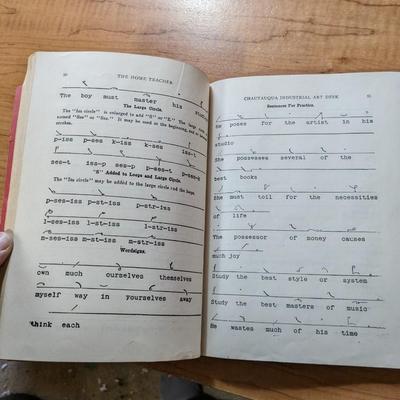 THE HOME TEACHER
The boy must master his studies
The Large Circle.
p-iss p-ses k-iss k-ses iss-t
ses-t iss-p ses-p p-ses-t p-ses-k
"S" Added to Loops and Large Circle.
The "Iss circle" may be added to the large circle and the loops.
p-ses-iss p-st-iss p-str-iss
l-ses-iss l-st-iss l-str-iss
m-ses-iss m-st-iss m-str-iss
Wordsigns.
own much ourselves themselves
myself way in yourselves away
think each
CHAUTAUQUA INDUSTRIAL ART DESK
Sentences For Practice.
He poses for the artist in his
studio
She possesses several of the
best books
She must toil for the necessities
of life
The possessor of money causes
much joy
Study the best style or system
Study the best masters of music
He wastes much of his time